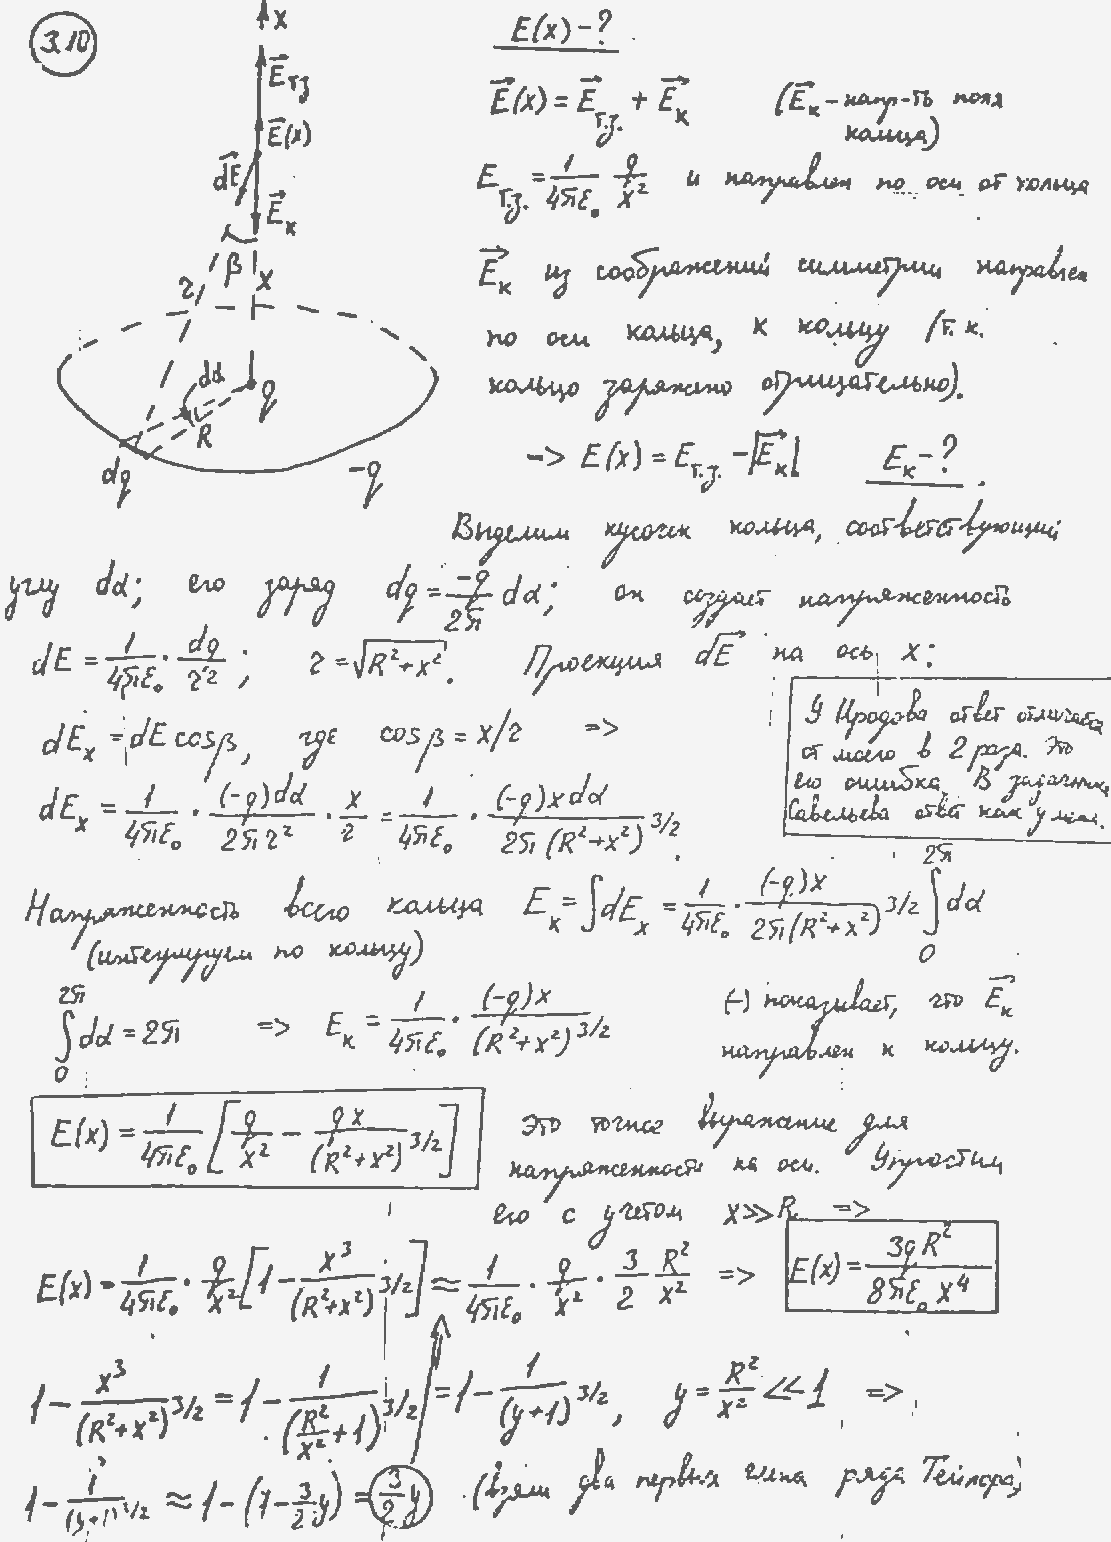 3.10
x
E⃗т.з
E⃗(x)
dE⃗
E⃗к
β
x
r
dα
q
R
dq
-q
E(x) - ?
E⃗(x) = E⃗т.з. + E⃗к (E⃗к - напр-ть поля
кольца)
Eт.з. = 1/4πε₀ q/x² и направлен по оси от кольца
E⃗к из соображений симметрии направлен
по оси кольца, к кольцу (т.к.
кольцо заряжено отрицательно).
=> E(x) = Eт.з. - |E⃗к| Eк - ?
Выделим кусочек кольца, соответствующий
углу dα; его заряд dq = -q/2π dα; он создает напряженность
dE = 1/4πε₀ · dq/r²; r = √(R²+x²). Проекция dE⃗ на ось x:
dEx = dE cosβ, где cosβ = x/r =>
У Иродова ответ отличается
от моего в 2 раза. Это
его ошибка. В задачнике
Савельева ответ как у меня.
dEx = 1/4πε₀ · (-q)dα/2πr² · x/r = 1/4πε₀ · (-q)x dα/2π(R²+x²)^3/2.
Напряженность всего кольца Eк = ∫dEx = 1/4πε₀ · (-q)x/2π(R²+x²)^3/2 ∫₀^2π dα
(интегрируем по кольцу)
∫₀^2π dα = 2π => Eк = 1/4πε₀ · (-q)x/(R²+x²)^3/2 (-) показывает, что E⃗к
направлен к кольцу.
E(x) = 1/4πε₀ [q/x² - qx/(R²+x²)^3/2] Это точное выражение для
напряженности на оси. Упростим
его с учетом x>>R =>
E(x) = 1/4πε₀ · q/x² [1 - x³/(R²+x²)^3/2] ≈ 1/4πε₀ · q/x² · 3/2 R²/x² => E(x) = 3qR²/8πε₀x⁴
1 - x³/(R²+x²)^3/2 = 1 - 1/(R²/x²+1)^3/2 = 1 - 1/(y+1)^3/2, y = R²/x² << 1 =>
1 - 1/(y+1)^3/2 ≈ 1 - (1 - 3/2 y) = 3/2 y (взяли два первых члена ряда Тейлора)